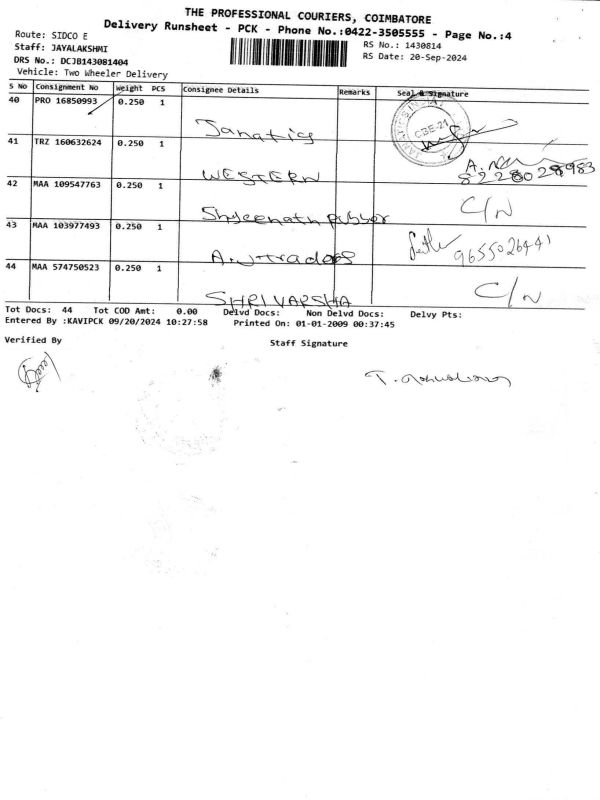 THE PROFESSIONAL COURIERS, COIMBATORE
Delivery Runsheet - PCK - Phone No.:0422-3505555 - Page No.:4
Route: SIDCO E
RS No.: 1430814
Staff: JAYALAKSHMI
RS Date: 20-Sep-2024
DRS No.: DCJB143081404
Vehicle: Two Wheeler Delivery
S No Consignment No Weight PCS Consignee Details Remarks Seal & Signature
40 PRO 16850993 0.250 1
Janatics
CBE-21
41 TRZ 160632624 0.250 1
WESTERN
8228028983
42 MAA 109547763 0.250 1
C/N
43 MAA 103977493 0.250 1
9655026441
44 MAA 574750523 0.250 1
SHRIVARSHA C/N
Tot Docs: 44 Tot COD Amt: 0.00 Delvd Docs: Non Delvd Docs: Delvy Pts:
Entered By :KAVIPCK 09/20/2024 10:27:58 Printed On: 01-01-2009 00:37:45
Verified By
Staff Signature